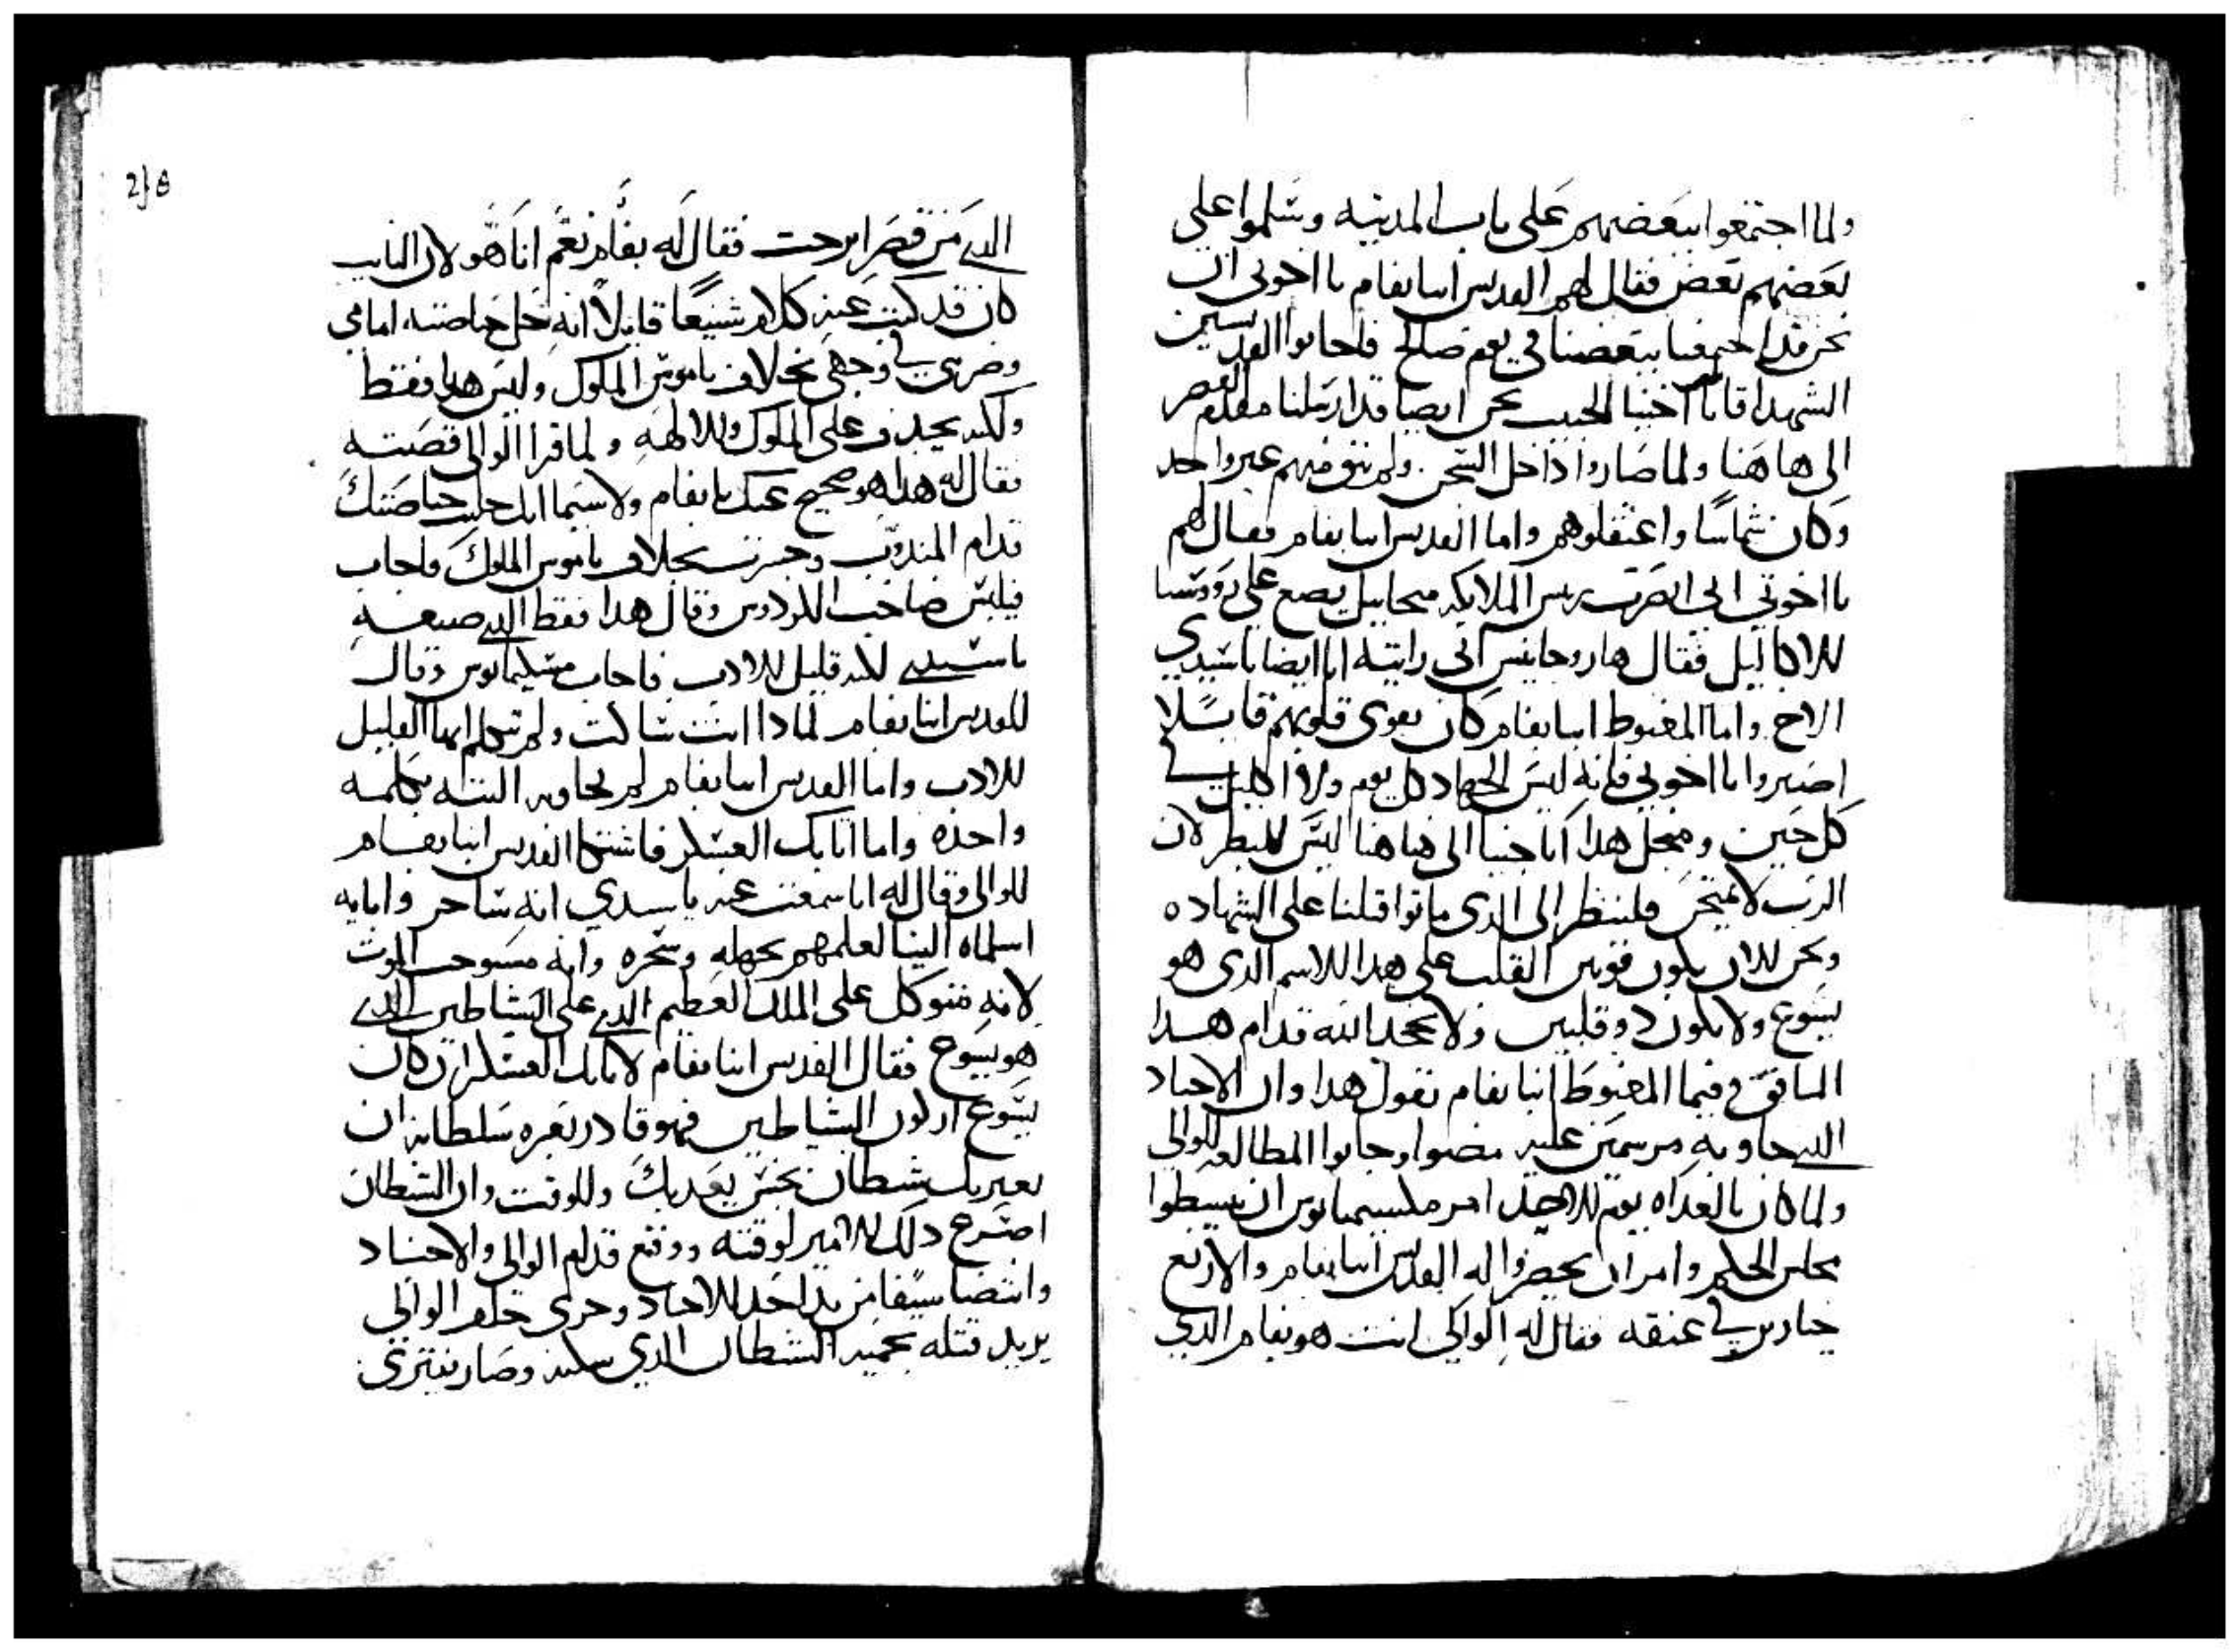 ولما اجتمعوا ببعضهم على باب المدينه وسلموا على
بعضهم بعض فقال لهم القديس انبا بفام يا اخوتي ان
نحن قد اجتمعنا ببعضنا في يوم صالح فاجابوا القديسين
الشهدا قايلين يا اخينا الحبيب نحن ايضا قد ارسلنا مقدم القصر
الى هاهنا ولما صاروا داخل السجن ولم يبق منهم غير واحد
وكان شماسا واعتقلوهم واما القديس انبا بفام فقال لهم
يا اخوتي اني ابصرت ريس الملايكه ميخاييل يضع على رووسنا
الاكاليل فقال هاروحانيس اني رايته انا ايضا يا سيدي
الاخ واما المغبوط انبا بفام كان يقوي قلوبهم قايلا
اصبروا يا اخوتي فانه ليس الجهاد كل يوم ولا الاكليل في
كل حين ومنجل هذا انا جينا الى هاهنا ليس للبطر لان
الرب لا يمتحن فلننظر الى الدي ماتوا قبلنا على الشهاده
ونحن الان نكون قويين القلب على هدا الاسم الدي هو
يسوع ولا نكون دو قلبين ولا نجحد الله قدام هدا
المنافق وفيما المغبوط انبا بفام يقول هدا وان الاجناد
الدي جاو به مرسمين عليه مضوا وجابوا المطالعه للوالي
ولما كان بالغداه يوم الاحد امر مكسيميانوس ان يبسطوا
مجلس الحكم وامر ان يحضروا له القديس انبا بفام والاربع
جنازير في عنقه فقال له الوالي انت هو بفام الدي
الدي من قصر ابرحت فقال له بفام نعم انا هو لان النايب
كان قد كتب عنه كلام شنيعا قايلا انه حل حياصته امامي
وضربني في وجهي بخلاف ناموس الملوك وليس هدا فقط
ولكنه يجدف على الملوك والالهه ولما قرا الوالي قصته
فقال له هدا هو صحيح عنك يا بفام ولا سيما انك حليت حياصتك
قدام المندوب وجسرت بخلاف ناموس الملوك فاجاب
فيلبس صاحب اللودوس وقال هدا فقط الدي صنعه
يا سيدي لكنه قليل الادب فاجاب مكسيميانوس وقال
للقديس انبا بفام لمادا انت ساكت ولم تتكلم ايها القليل
الادب واما القديس انبا بفام لم يجاوبه البته بكلمه
واحده واما اتابك العسكر فاشتكا القديس انبا بفام
للوالي وقال له انا سمعت عنه يا سيدي انه ساحر وابايه
اسلماه الينا لعلمهم بجهله وسحره وانه مستوجب الموت
لانه متوكل على الملك العظيم الدي على الشياطين الدي
هو يسوع فقال القديس انبا بفام لاتابك العسكر ان كان
يسوع اركون الشياطين فهو قادر بقوه سلطانه ان
يعتريك شيطان نجس يعدبك وللوقت وان الشيطان
اصرع دلك الامير لوقته ووقع قدام الوالي والاجناد
وانتضا سيفا من يد احد الاجناد وجرى خلف الوالي
يريد قتله بحميه الشيطان الدي سكنه وصار يفتري